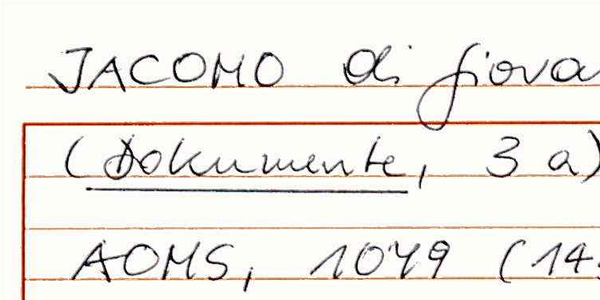 JACOMO di giova
(Dokumente, 3 a)
AOMS, 1049 (14